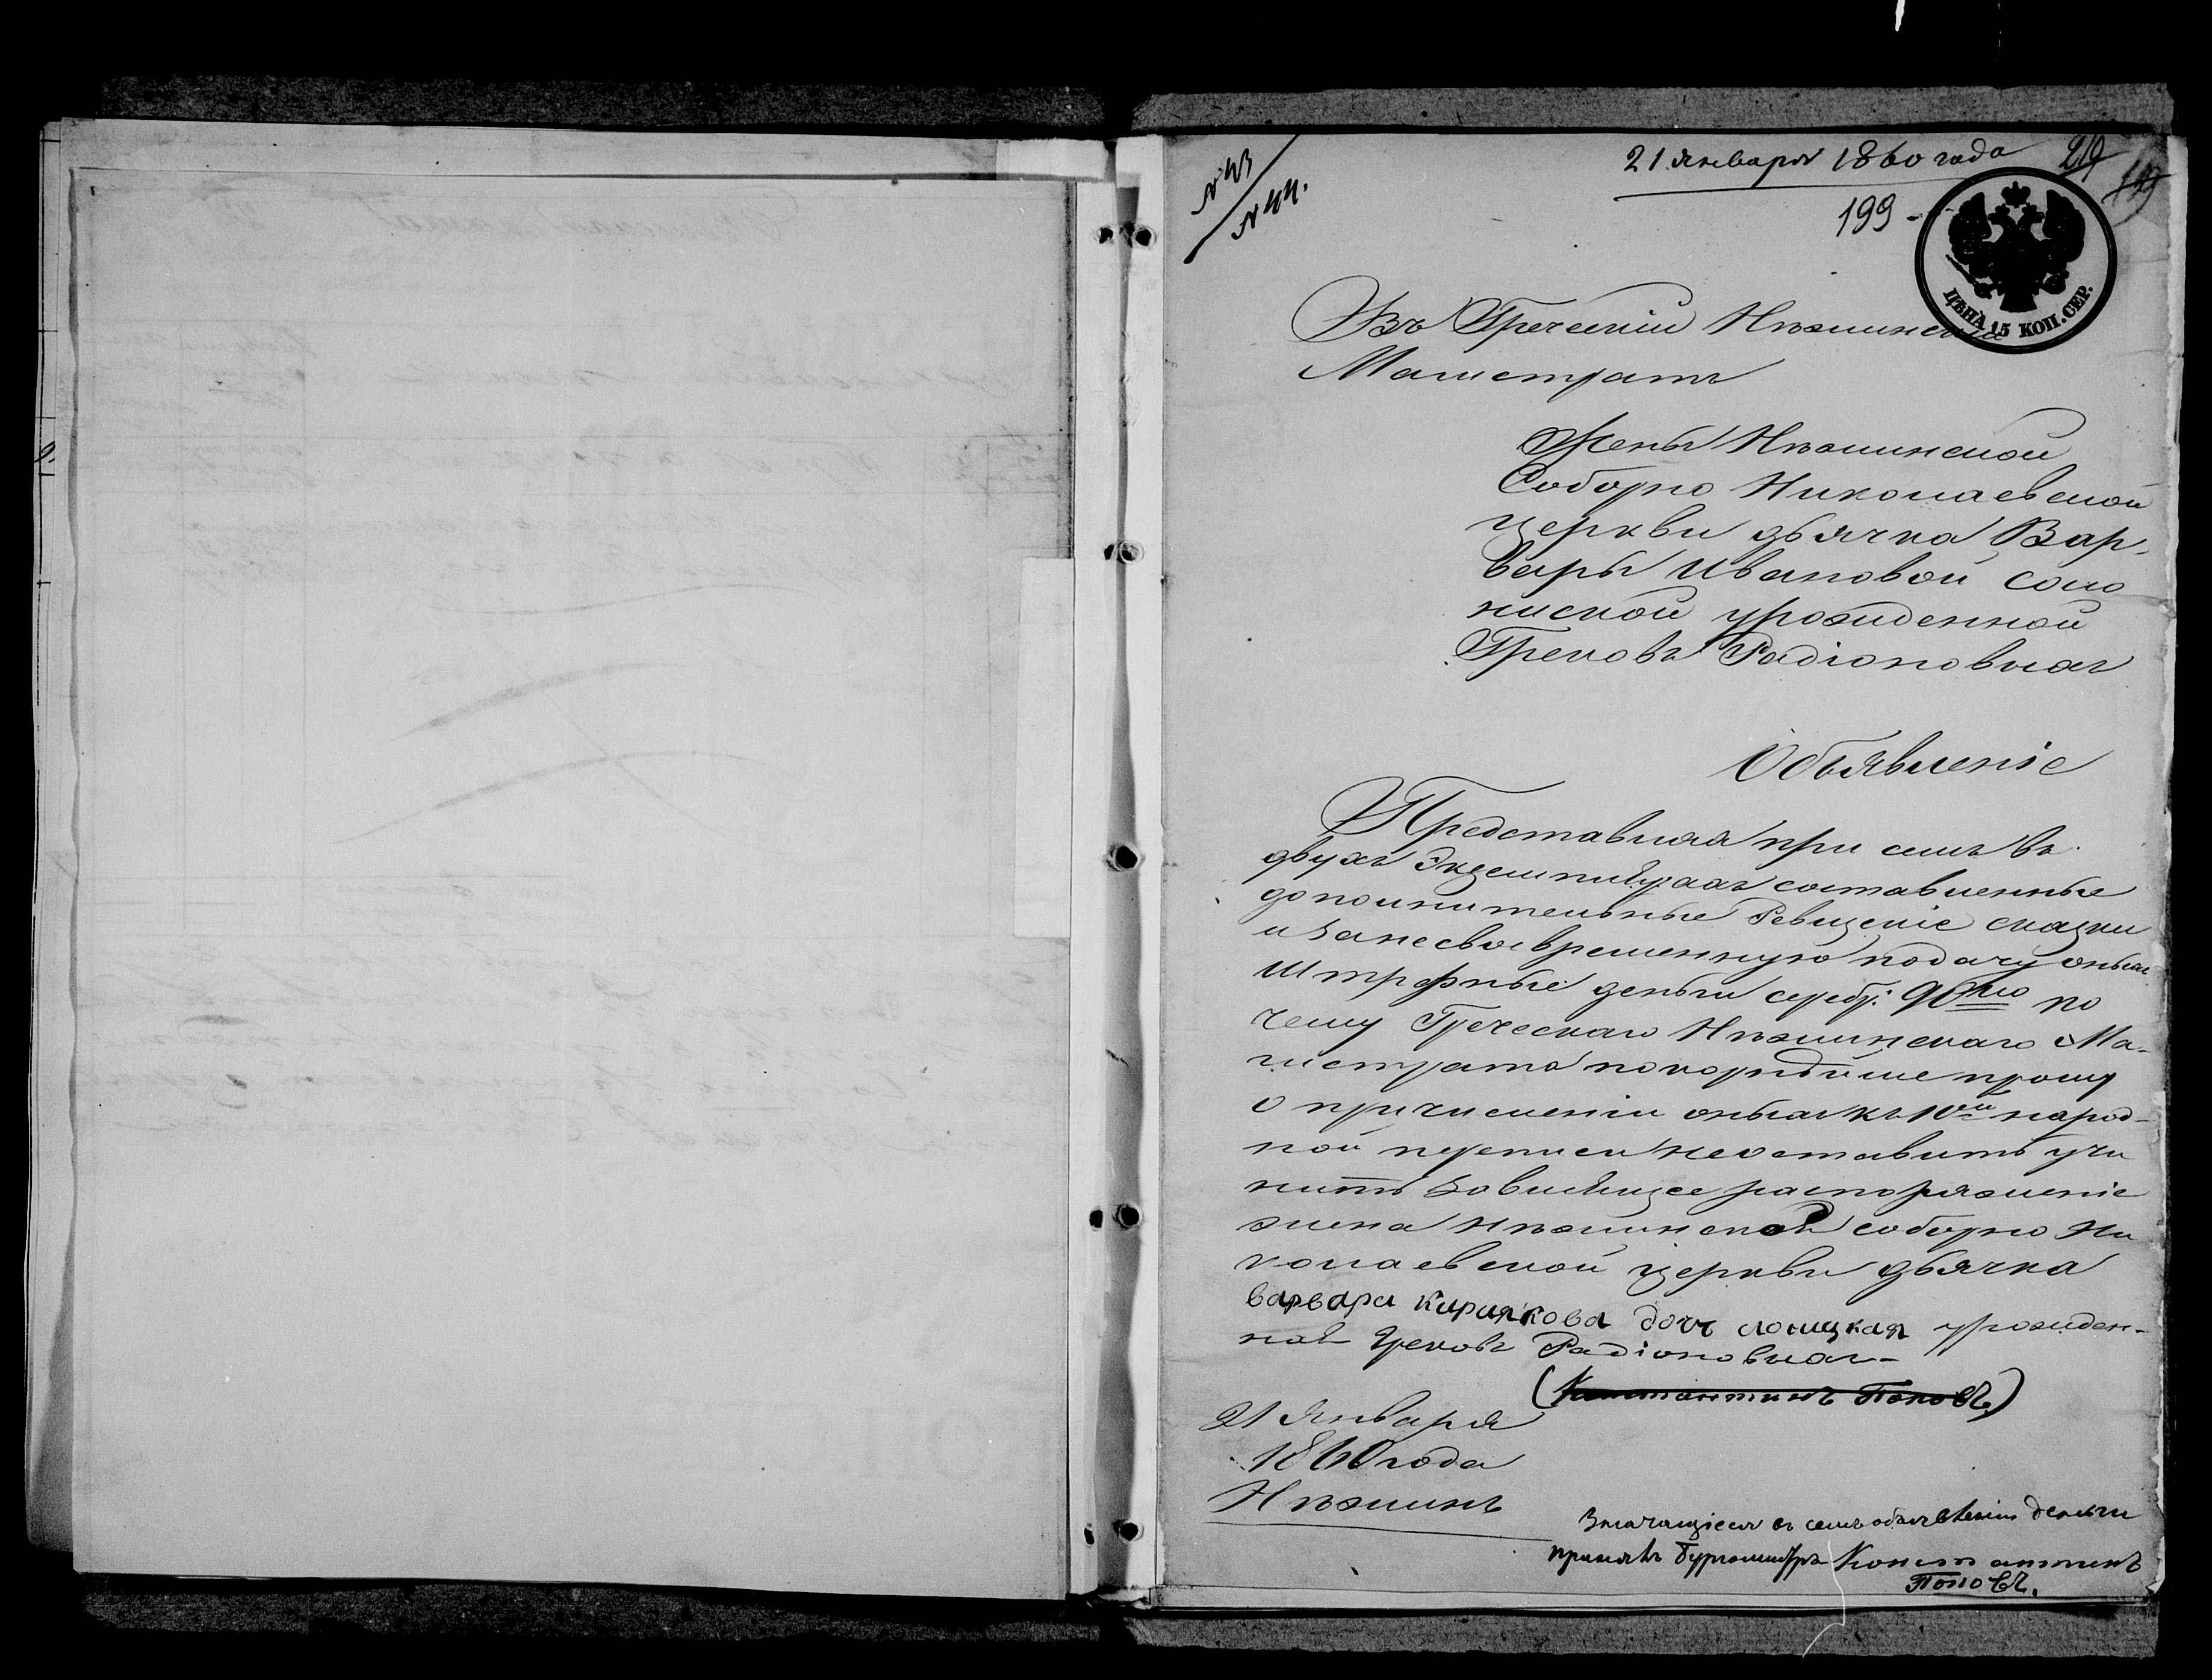 N 43
N 44.
21 января 1860 года
219
199
ЦѢНА 15 КОП. СЕР.
Въ Греческій Нѣжинскій
Магистратъ
Жены Нѣжинской
Соборно Николаевской
церкви дьячка Вар-
вары Ивановой Соло
ниской урожденной
Грековъ Радіоновыхъ
Объявленіе
Представляя при семъ въ
двухъ Экземплярахъ составленные
дополнительные Ревизскіе сказки
и за несвоевременную подачу оныхъ
Штрфные деньги серебр: по
чему Греческаго Нѣжинскаго Ма-
гистрата покорнѣйше прошу
о причисленіи оныхъ къ 10й народ-
ной переписи неоставить учи
нить зависящее распоряженіе
жена Нѣжинской соборно Ни
колаевской церкви дьячка
варвара кириякова дочъ урожден-
ная Грековъ Радіоновыхъ-
(Константинъ Поповъ.)
21 Января
1860 года
Нѣжинъ
Значащіеся въ семъ объявленіи деньги
принялъ Бургомистръ Константинъ
Поповъ.